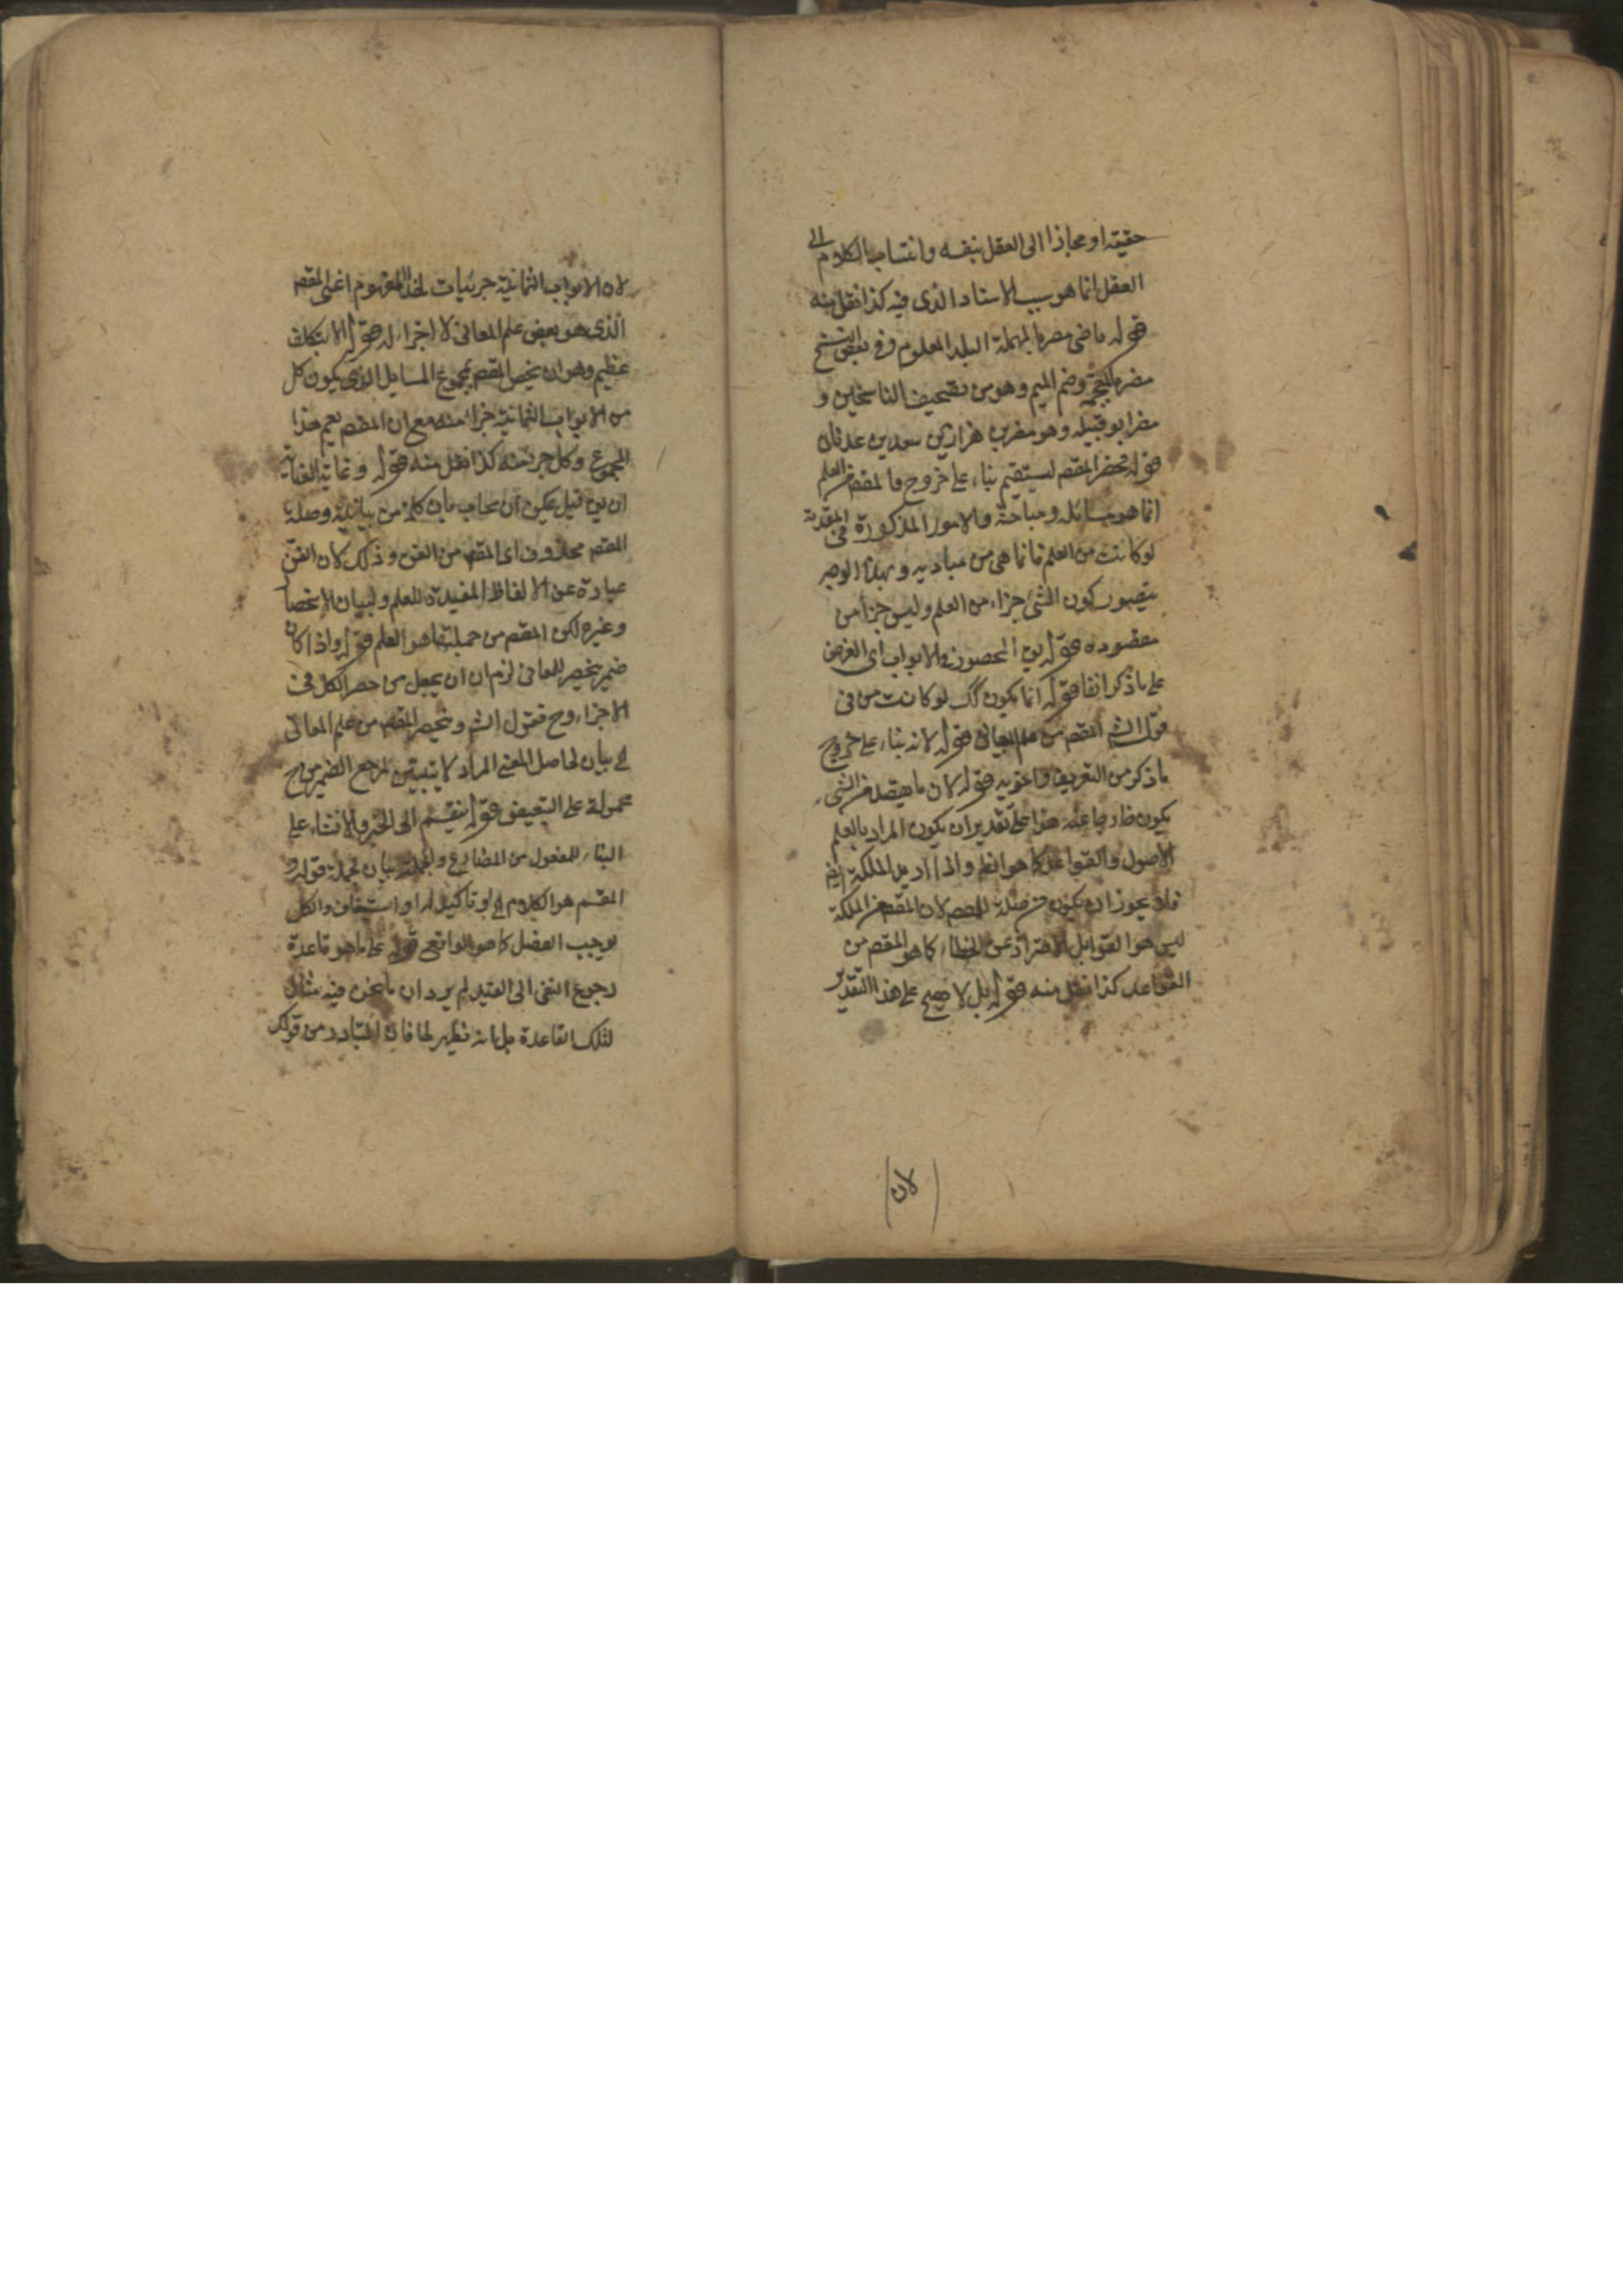 حقيقة او مجازا الى العقل بنفسه وانتساب الكلام الى
العقل انما هو بسبب الاسناد الذى فيه كذا نقل منه
قوله ماضى مصر بالمهملة البلد المعلوم وفى بعض النسخ
مضر بالمعجمة وضم الميم وهو من تصحيف الناسخين و
مضر ابو قبيلة وهو مضر بن نزار بن معد بن عدنان
قوله ينحصر المقصـ ليستقيم بناء على خروج فالمقصـ من العلم
انما هو مسائله ومباحثه والامور المذكورة فى المقدمة
لو كانت من العلم فانما هى من مباديه وبهذا الوجه
يتصور كون الشئ جزاء من العلم وليس جزأ من
مقصوده قوله بين المحصور والابواب اى الغرض
على ما ذكر انفا قوله انما يكون كك لو كانت من فى
قول الشـ المقصـ من علم المعانى قوله لانه بناء على خروج
ما ذكر من التعريف واخويه قوله لان ما يقصد من الشئ
يكون خارجا عنه هذا على تقدير ان يكون المراد بالعلم
الاصول والقواعد كما هو الظـ واذا اريد الملكة ايضـ
فلا يجوز ان يكون من صلة للمقصـ لان المقصـ من الملكة
ليس هو القوا بل الاحتراز عن الخطاء كما هو المقصـ من
القواعد كذا نقل منه قوله بل لا يصح على هذا التقدير
لان
لان الابواب الثمانية جزئيات لهذا المفهوم اعنى المقصـ
الذى هو بعض علم المعانى لا اجزاء له قوله الا بتكلف
عظيم وهو ان يخص المقصـ بمجموع المسايل الذى يكون كل
من الابواب الثمانية جزأ منه مع ان المقصـ يعم هذا
المجموع وكل جزء منه كذا نقل منه قوله وغاية العناية
ان بين قيل يمكن ان يجاب بان كلمة من بيانية وصلة
المقصـ محذوف اى المقصـ من الفن وذلك لان الفن
عبارة عن الالفاظ المفيدة للعلم ولبيان الانحصا
وغيره لكن المقصـ من جملتها هو العلم قوله واذا كان
ضمير ينحصر للمعانى لزم ان يجعل من حصر الكل فى
الاجزاء وح فقول الشـ وينحصر المقصـ من علم المعانى
الخ بيان لحاصل المعنى المراد لا تبيين لمرجع الضمير من ح
محمولة على التبعيض قوله ينقسم الى الخبر والانشاء على
البناء للمفعول من المضارع والجملة بيان لجملة قوله و
المقسم هو الكلام الخ او تاكيد له او استيناف والكل
يوجب الفصل كما هو الواقع قوله على ما هو قاعدة
رجوع النفى الى القيد لم يرد ان ما نحن فيه مثال
لتلك القاعدة بل انه نظير لها فان المتبادر من قولك